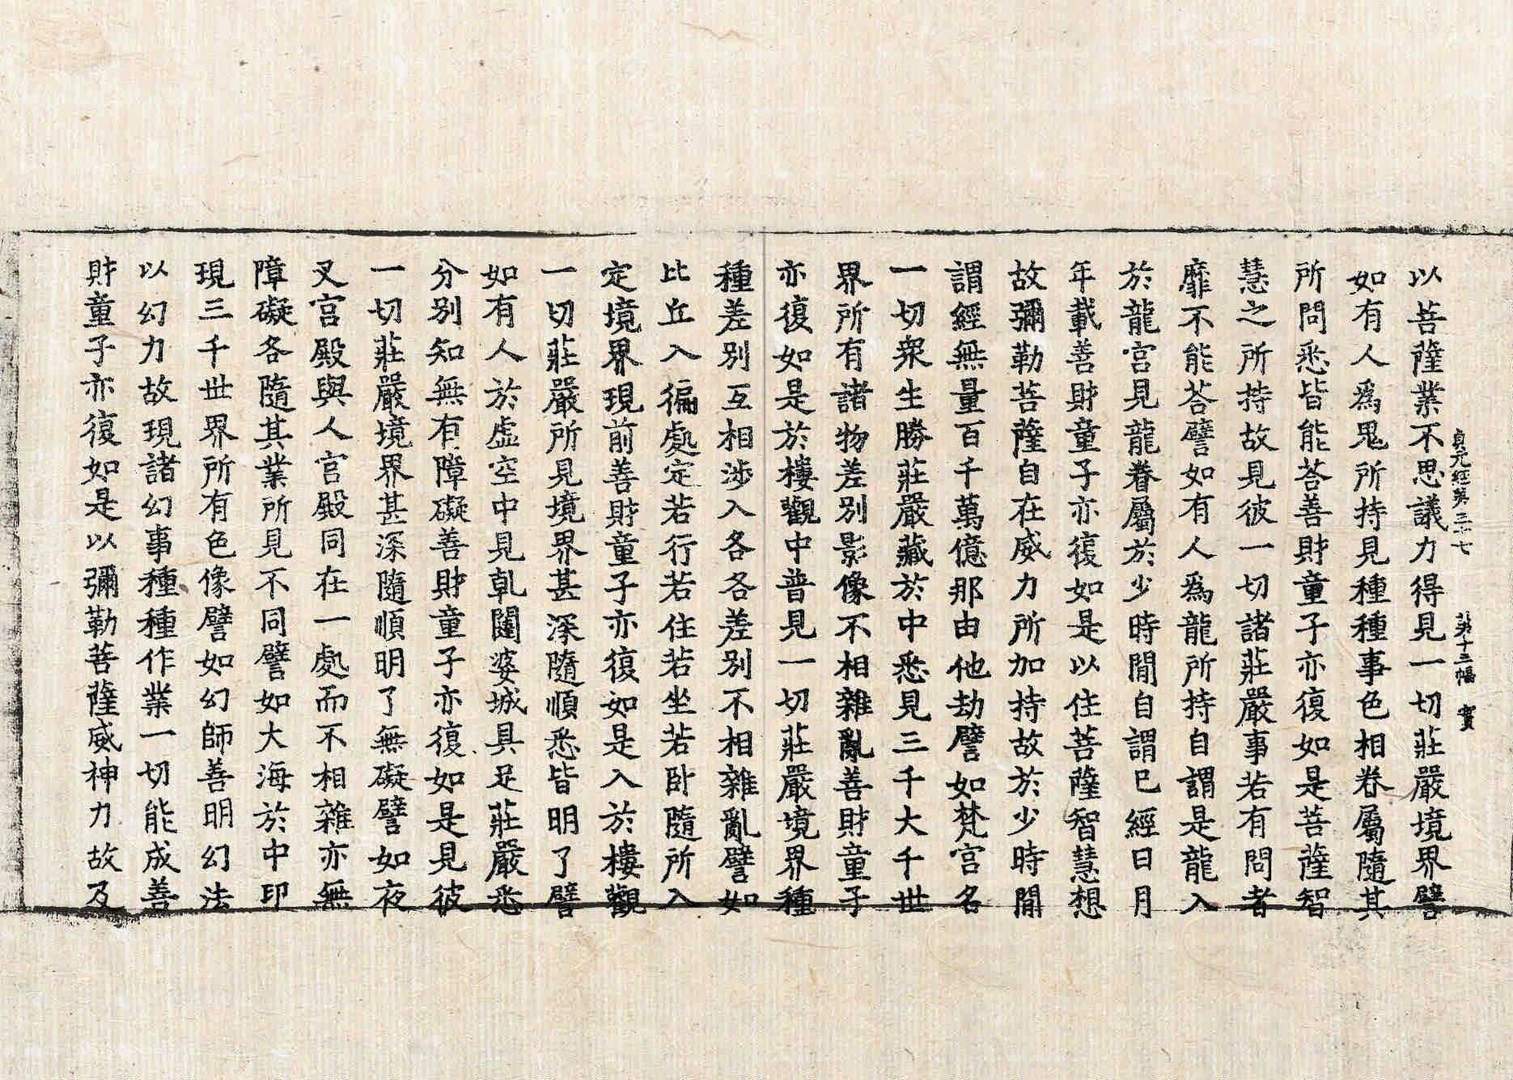 貞元經第三十七　第十三幅　實
以菩薩業不思議力得見一切莊嚴境界譬
如有人爲鬼所持見種種事色相眷屬隨其
所問悉皆能荅善財童子亦復如是菩薩智
慧之所持故見彼一切諸莊嚴事若有問者
靡不能荅譬如有人爲龍所持自謂是龍入
於龍宮見龍眷屬於少時間自謂已經日月
年載善財童子亦復如是以住菩薩智慧想
故彌勒菩薩自在威力所加持故於少時間
謂經無量百千萬億那由他劫譬如梵宮名
一切衆生勝莊嚴藏於中悉見三千大千世
界所有諸物差別影像不相雜亂善財童子
亦復如是於樓觀中普見一切莊嚴境界種
種差別互相涉入各各差別不相雜亂譬如
比丘入徧處定若行若住若坐若卧隨所入
定境界現前善財童子亦復如是入於樓觀
一切莊嚴所見境界甚深隨順悉皆明了譬
如有人於虛空中見乹闥婆城具足莊嚴悉
分別知無有障礙善財童子亦復如是見彼
一切莊嚴境界甚深隨順明了無礙譬如夜
叉宮殿與人宮殿同在一處而不相雜亦無
障礙各隨其業所見不同譬如大海於中印
現三千世界所有色像譬如幻師善明幻法
以幻力故現諸幻事種種作業一切能成善
財童子亦復如是以彌勒菩薩威神力故及